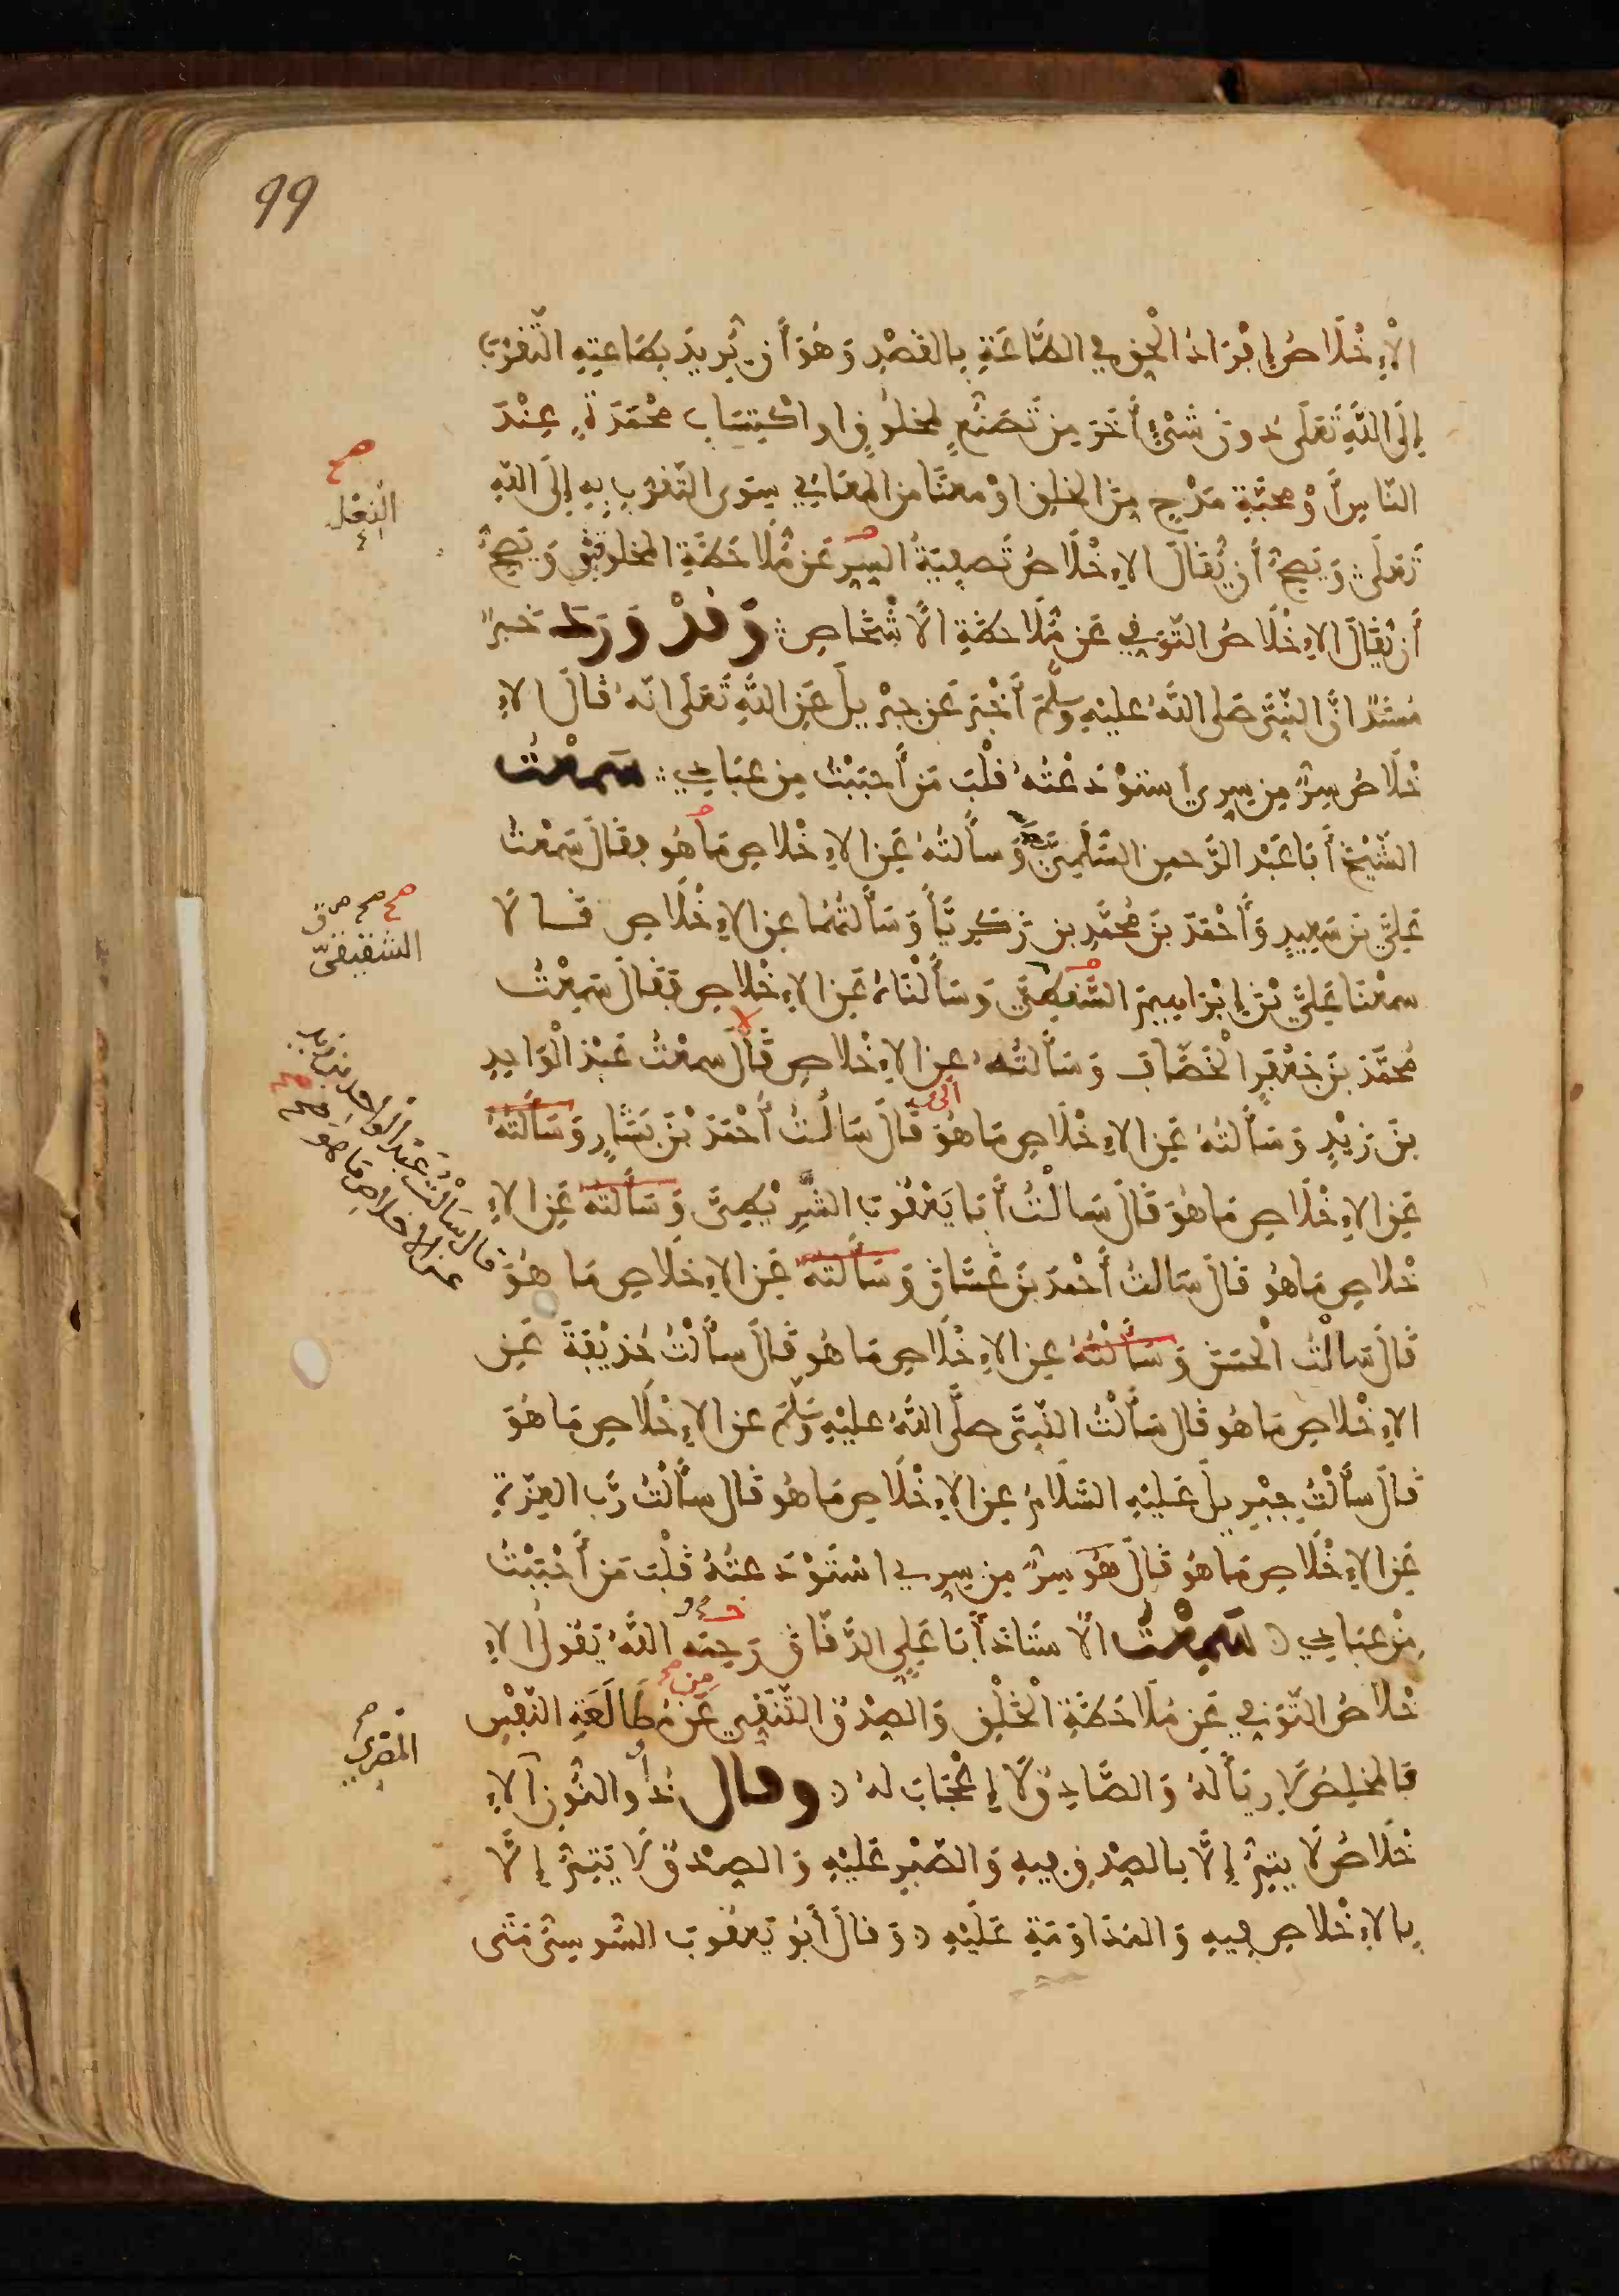 99
الْإِخْلَاصُ إِفْرَادُ الْحَقِّ فِي الطَّاعَةِ بِالْقَصْدِ وَهُوَ أَنْ يُرِيدَ بِطَاعَتِهِ التَّقَرُّبَ
إِلَى اللَّهِ تَعَلَى دُونَ شَيْءٍ أَخَرَ مِنْ تَصَنُّعٍ لِمَخْلُوقٍ او اكْتِسَابِ مَحْمَدَةٍ عِنْدَ
النَّاسِ أَوْ مَحَبَّةِ مَدْحٍ مِنَ الْخَلْقِ اوْ مَعْنًا مِنَ الْمَعَانِي سِوَى التَّقَرُّبِ بِهِ إِلَى اللَّهِ
تَعَلَى وَيَصِحُّ أَنْ يُقَالَ الْإِخْلَاصُ تَصْفِيَةُ السِّرِّ عَنْ مُلَاحَظَةِ الْمَخْلُوقِينَ وَيَصِحُّ
أَنْ يُقَالَ الْإِخْلَاصُ التَّوَقِّي عَنْ مُلَاحَظَةِ الْأَشْخَاصِ وَقَدْ وَرَدَ خَبَرٌ
مُسْنَدٌ انَّ النَّبِيَّ صَلى اللَّهُ عليْهِ وَسَلَّمَ أَخْبَرَ عَنْ جِبْرِيلَ عَنِ اللَّهِ تَعَلَى انَّهُ قَالَ الْإِ
خْلَاصُ سِرٌّ مِنْ سِرِي اسْتَوْدَعْتُهُ قَلْبَ مَنْ أَحْبَبْتُ مِنْ عِبَادِي سَمِعْتُ
الشَّيْخَ أَبَا عَبْدِ الرَّحْمنِ السُّلَمِيَّ وَسَأَلْتُهُ عَنِ الْإِخْلَاصِ مَا هُوَ فقَالَ سَمِعْتُ
عَلِيَّ بْنَ سَعِيدٍ وَأَحْمَدَ بْنَ مُحَمَّدِ بنِ زَكَرِيَّا وَسَأَلْتُهُمَا عنِ الْإِخْلَاصِ قَالَا
سمعْنَا عَلِيَّ بْنَ إِبْرَاهِيمَ الشَّقِيقِيَّ وَسَأَلْنَاهُ عَنِ الْإِخْلَاصِ فَقَالَ سَمِعْتُ
مُحَمَّدَ بْنَ جَعْفَرٍ الْخَصَّافَ وَسَأَلْتُهُ عنِ الْإِخْلَاصِ قَالَ سمعْتُ عَبْدَ الْوَاحِدِ
بْنَ زَيْدٍ وَسَأَلْتُهُ عَنِ الْإِخْلَاصِ مَا هُوَ قَالَ سَالْتُ أَحْمَدَ بْنَ بَشَّارٍ وَسَأَلْتُهُ
عَنِ الْإِخْلَاصِ مَا هُوَ قَالَ سَالْتُ أَبَا يَعْقُوبَ الشَّرِيطِيَّ وَسَأَلْتُهُ عَنِ الْإِ
خْلَاصِ مَا هُوَ قَالَ سَالْتُ أَحْمَدَ بْنَ غَسَّانَ وَسَأَلْتُهُ عَنِ الْإِخْلَاصِ مَا هُوَ
قَالَ سَالْتُ الْحَسَنَ وَسَأَلْتُهُ عنِ الْإِخْلَاصِ مَا هُوَ قَالَ سأَلْتُ حُذَيْفَةَ عَنِ
الْإِخْلَاصِ مَا هُوَ قَالَ سَأَلْتُ النَّبِيَّ صلَّى اللَّهُ عليْهِ وَسَلَّمَ عنِ الْإِخْلَاصِ مَا هُوَ
قَالَ سأَلْتُ جِبْرِيلَ عَلَيْهِ السَّلَامُ عنِ الْإِخْلَاصِ مَا هُوَ قَالَ سأَلْتُ رَبَّ الْعِزَّةِ
عَنِ الْإِخْلَاصِ مَا هُوَ قَالَ هُوَ سِرٌّ مِنْ سِرِي اسْتَوْدَعْتُهُ قَلْبَ مَنْ أَحْبَبْتُ
مِنْ عِبَادِي سَمِعْتُ الْأُسْتَاذَ أَبَا عَلِيٍّ الدَّقَّاقَ رَحِمَهُ اللَّهُ يَقُولُ الْإِ
خْلَاصُ التَّوَقِّي عَنْ مُلَاحَظَةِ الْخَلْقِ وَالصِّدْقُ التَّنَقِّي عَنْ مُطَالَعَةِ النَّفْسِ
فَالْمُخْلِصُ لَا رِيَاءَ لَهُ وَالصَّادِقُ لَا إِعْجَابَ لهُ وقال ذُو النُّونِ الْإِ
خْلَاصُ لَا يَتِمُّ إِلَّا بالصِّدْقِ فِيهِ وَالصَّبْرِ عَلَيْهِ وَالصِّدْقُ لَا يَتِمُّ إِلَّا
بِالْإِخْلَاصِ فِيهِ وَالْمُدَاوَمَةِ عَلَيْهِ وَقَالَ أَبُو يَعْقُوبَ السُّوسِيُّ مَتَى
صح
صح صح
الشقيقيّ
قال سَأَلْتُ عَبْدَ الْوَاحِدِ بْنَ زَيْدٍ
عنِ الْإِخلاص مَا هو صح
الْمِصْرِيُّ